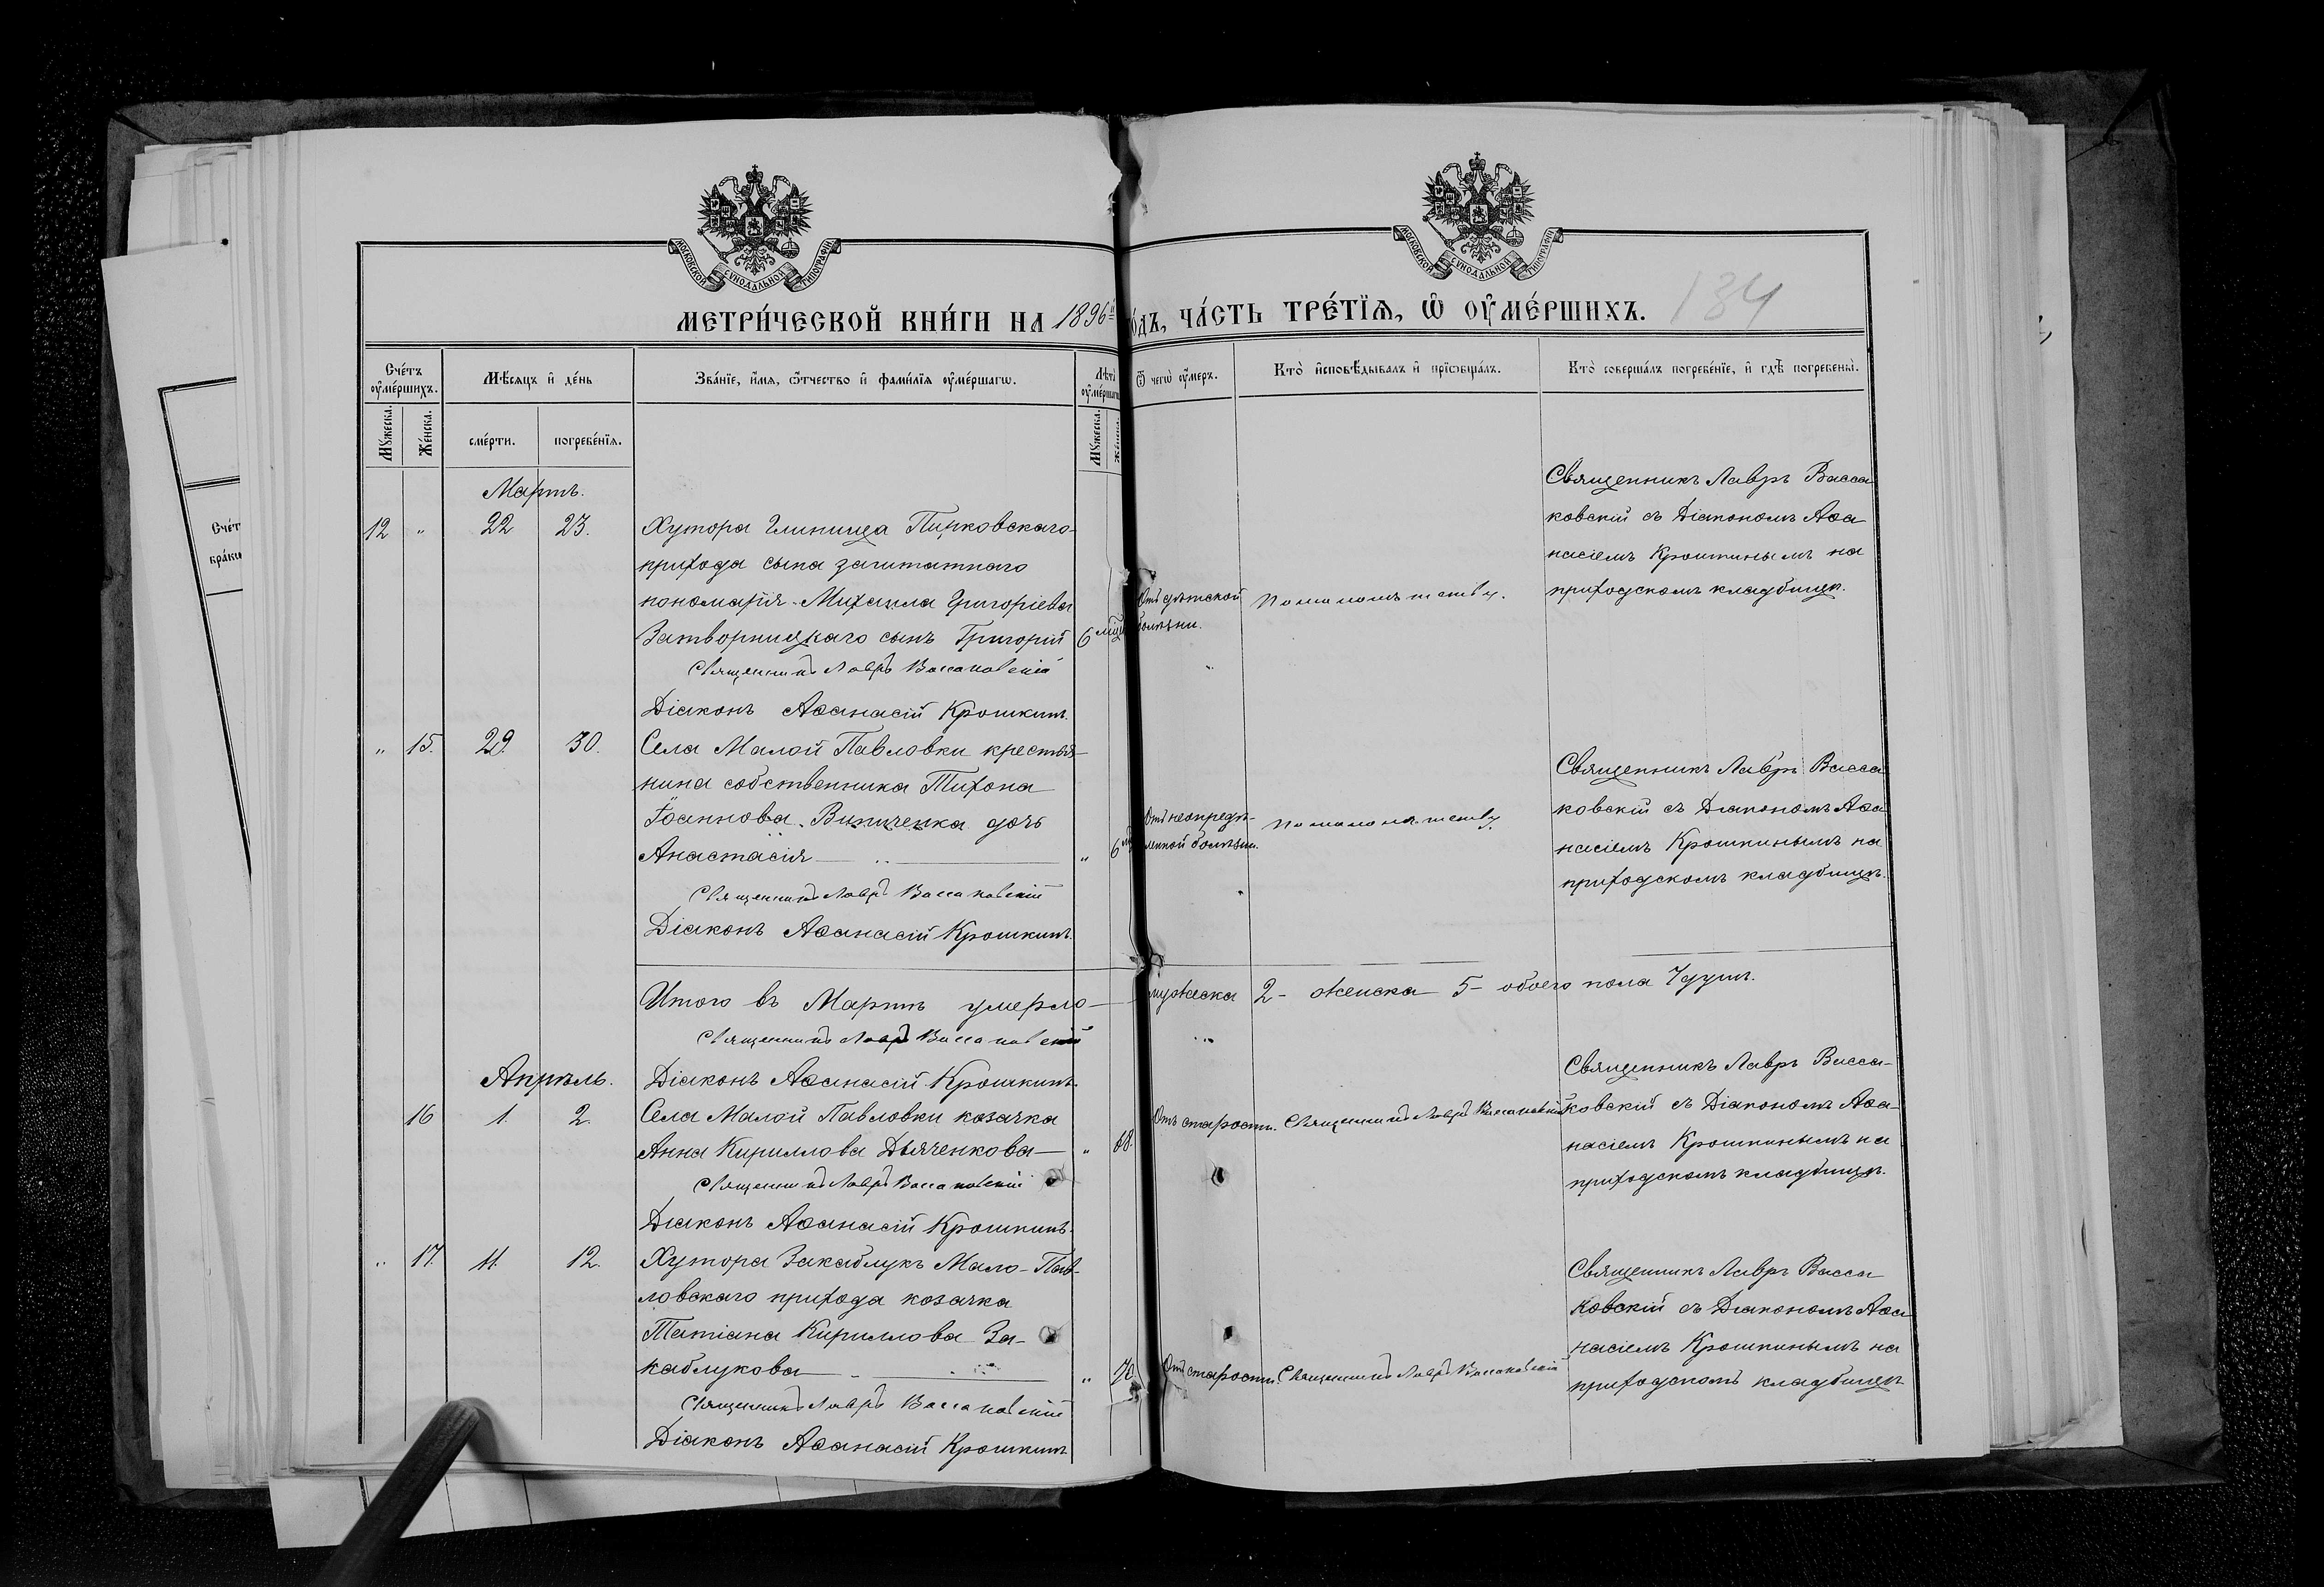 МОСКОВСКОЙ СѴНОДАЛЬНОЙ ТИПОГРАФІИ
МОСКОВСКОЙ СѴНОДАЛЬНОЙ ТИПОГРАФІИ
134
МЕТРИ́ЧЕСКОЙ КНИ́ГИ НА 1896й
о́дъ, ЧА́СТЬ ТРЕ́ТЇѦ, Ѡ҆ ОУ҆МЕ́РШИХЪ.
Сче́тъ оу҆ме́ршихъ.
Мѣ́сяцъ и҆ де́нь
Зва́нїе, и҆́мя, ѻ҆́тчество и҆ фами́лїя оу҆ме́ршагѡ.
Лѣ́тъ оу҆ме́ршагѡ
Ѿ чегѡ̀ оу҆́меръ.
Кто̀ и҆сповѣ́дывалъ и҆ прїѡбща́лъ.
Кто̀ соверша́лъ погребе́нїе, и҆ гдѣ̀ погребены̀.
Мꙋ́жеска.
Же́нска.
сме́рти.
погребе́нїя.
Мꙋ́жеска.
Же́нска.
Счет
бра́ки
Мартъ.
12 " 22 23.
Хутора Глинища Пирковскаго
прихода сына заштатнаго
пономаря Михаила Григоріева
Затворницкаго сынъ Григорій 6 мѣс
Священникъ Лавръ Вассаковскій
Діаконъ Аѳанасій Крошкинъ.
Отъ дѣтской
болѣзни.
По малолѣтству.
Священникъ Лавръ Васса
ковскій съ Діакономъ Аѳа
насіемъ Крошкинымъ на
приходскомъ кладбищѣ.
" 15. 29. 30.
Села Малой Павловки крестья-
нина собственника Тихона
Іоаннова Виниченка дочь
Анастасія " 6
Священникъ Лавръ Вассаковскій
Діаконъ Аѳанасій Крошкинъ.
Отъ неопредѣ-
ленной болѣзни.
По малолѣтству
Священникъ Лавръ Васса
ковскій съ Діакономъ Аѳа
насіемъ Крошкинымъ на
приходскомъ кладбищѣ.
Итого въ Мартѣ умерло — мужеска 2 - женска 5 - обоего пола 7 душъ.
Священникъ Лавръ Вассаковскій
Діаконъ Аѳанасій Крошкинъ.
Апрѣль.
16 1. 2.
Села Малой Павловки козачка
Анна Кириллова Дьяченкова — " 68.
Священникъ Лавръ Вассаковскій
Діаконъ Аѳанасій Крошкинъ.
Отъ старости.
Священникъ Лавръ Вассаковскій
Священникъ Лавръ Васса-
ковскій съ Діакономъ Аѳа-
насіемъ Крошкинымъ на
приходскомъ кладбищѣ.
" 17. 11. 12.
Хутора Закаблукъ Мало-Пав-
ловскаго прихода козачка
Татіана Кириллова За-
каблукова " 70.
Священникъ Лавръ Вассаковскій
Діаконъ Аѳанасій Крошкинъ
Отъ старости.
Священникъ Лавръ Вассаковскій
Священникъ Лавръ Васса
ковскій съ Діакономъ Аѳа
насіемъ Крошкинымъ на
приходскомъ кладбищѣ